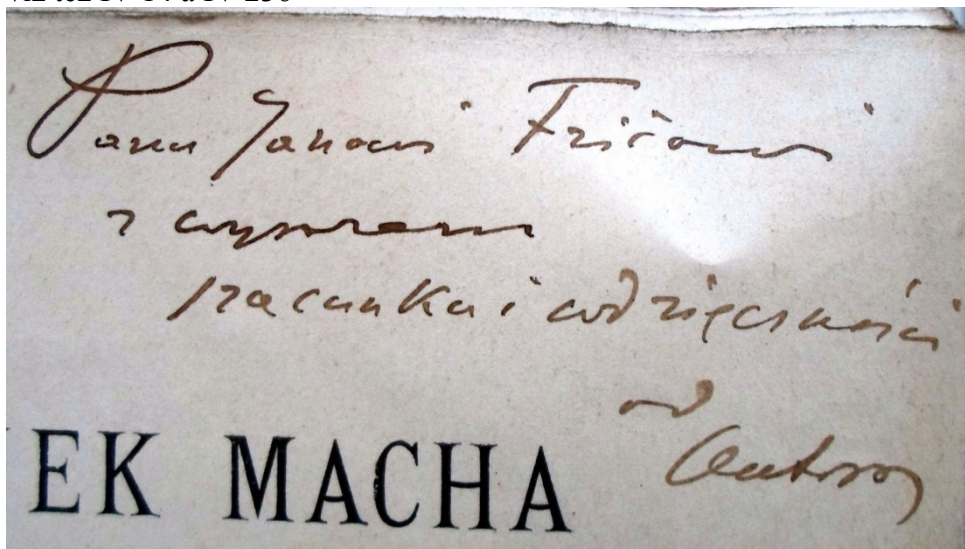 Panu Janowi Fričowi
z wyrazem
szacunku i wdzięczności
od
Autora
EK MACHA